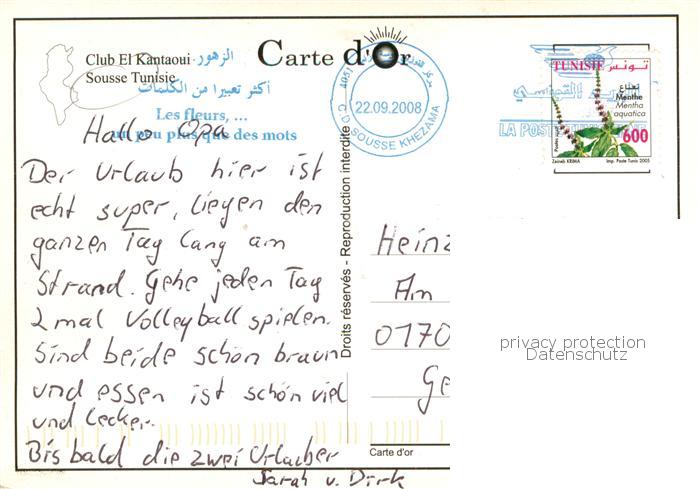 Club El Kantaoui
Sousse Tunisie
Carte d'Or
الزهور
أكثر تعبيرا من الكلمات
Les fleurs, ...
un peu plus que des mots
4051
C.D. SOUSSE KHEZAMA
22.09.2008
TUNISIE تونس
نعناع
Menthe
Mentha
aquatica
600
Zeineb KRIMA
Imp. Poste Tunis 2005
LA POSTE
Hallo Opa
Der Urlaub hier ist
echt super, liegen den
ganzen Tag lang am
Strand. Gehe jeden Tag
2 mal Volleyball spielen.
Sind beide schön braun
und essen ist schön viel
und lecker.
Bis bald die zwei Urlauber
Sarah u. Dirk
Droits réservés - Reproduction interdite
Heinz
Am
0170
Ge
Carte d'or
privacy protection
Datenschutz